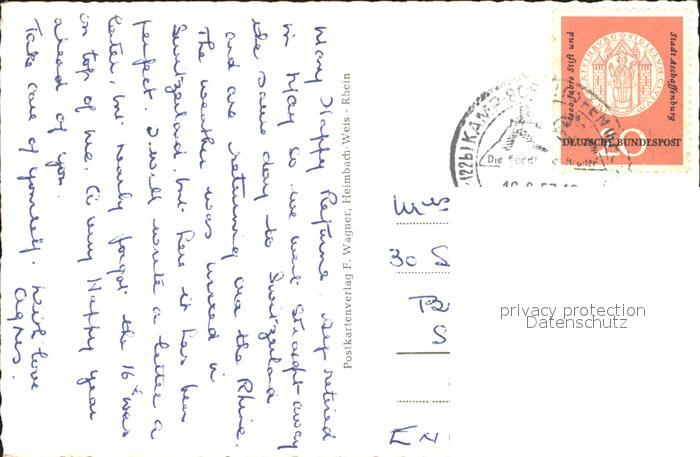 Many Happy Returns. Alf retired
in May so we went straight away
the same day to Switzerland
and are returning via the Rhine.
The weather was mixed in
Switzerland but here it has been
perfect. I will write a letter a
later, but nearly forgot the 16th was
on top of me. A very Happy year
ahead of you.
Take care of yourself. With love
Agnes.
Postkartenverlag F. Wagner, Heimbach-Weis - Rhein
(22b) KAMP-BOR
1000 Jahre Stift und
Stadt Aschaffenburg
20
DEUTSCHE BUNDESPOST
30 S
privacy protection
Datenschutz